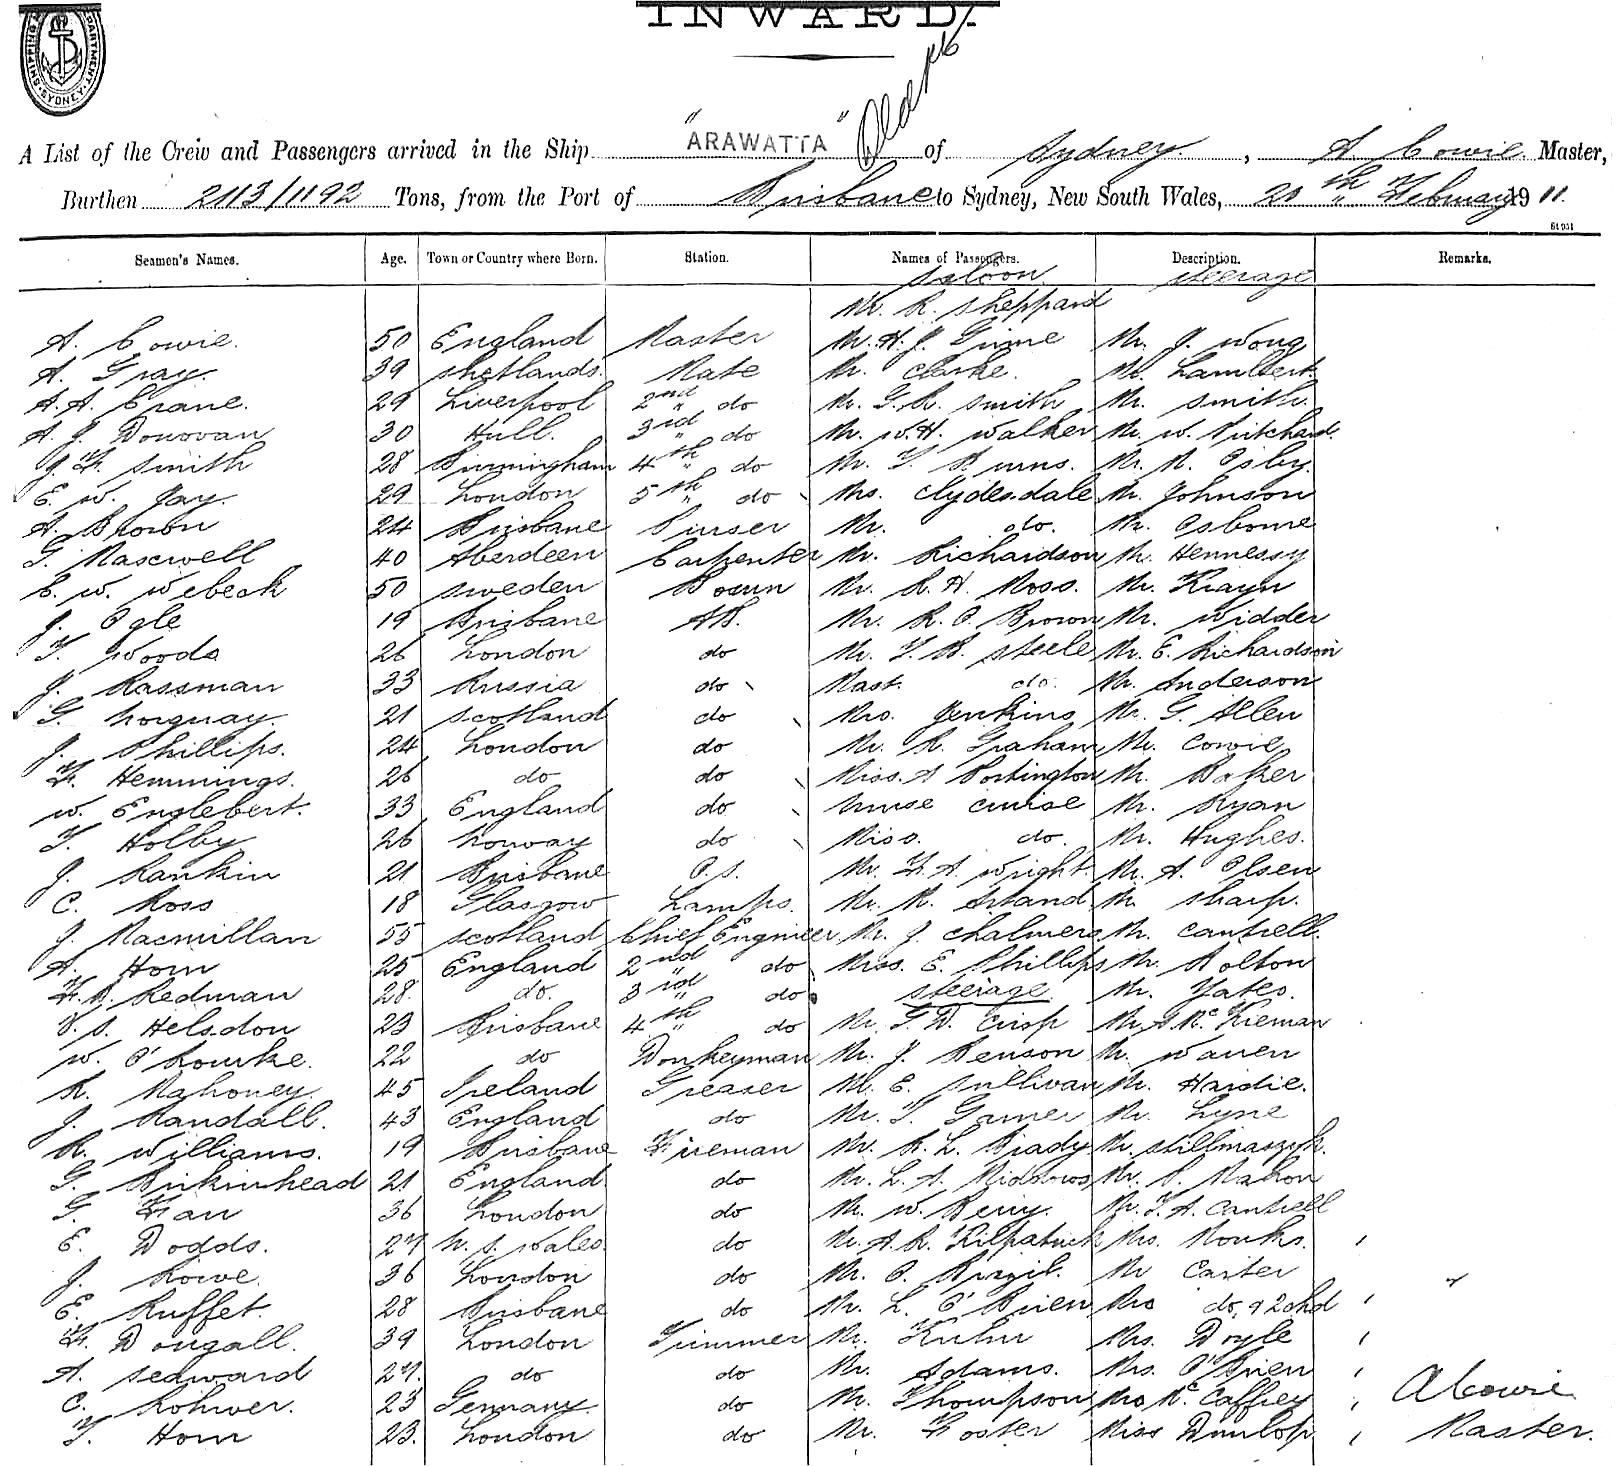 INWARD.
SHIPPING DEPARTMENT SYDNEY
A List of the Crew and Passengers arrived in the Ship "ARAWATTA" of Sydney, A. Cowie Master,
Burthen 2113/1192 Tons, from the Port of Brisbane to Sydney, New South Wales, 20th February 1911.
51931
Seamen's Names. Age. Town or Country where Born. Station. Names of Passengers. Description. Remarks.
Saloon Steerage
Mr. R. Sheppard
A. Cowie. 50 England Master Mr. H. J. Grime Mr. J. Wong
A. Gray. 39 Shetlands. Mate Mr. Clarke. Mr. Lambert.
A. A. Crane. 29 Liverpool 2nd " do Mr. G. R. Smith Mr. Smith.
A. J. Donovan 30 Hull. 3rd " do Mr. W. H. Walker Mr. W. Pritchard.
J. H. Smith 28 Birmingham 4th " do Mr. T. Burns. Mr. R. Osby.
E. W. Jay. 29 London 5th " do Mrs. Clydesdale Mr. Johnson
A. Brown 24 Brisbane Purser Mr. do. Mr. Osborne
G. Maxwell 40 Aberdeen Carpenter Mr. Richardson Mr. Hennessy
C. W. Webeck 50 Sweden Bosun Mr. R. H. Ross. Mr. Krayn
J. Ogle 19 Brisbane AB. Mr. R. C. Brown Mr. Widder
T. Woods 26 London do Mr. T. B. Steele Mr. E. Richardson
J. Rassman 33 Russia do Mast. do. Mr. Anderson
G. Norquay. 21 Scotland do Mrs. Jenkins Mr. G. Allen
J. Phillips. 24 London do Mr. R. Graham Mr. Cowie
F. Hemmings. 26 do do Miss. A Portington Mr. Baker
W. Englebert. 33 England do Nurse Cruise Mr. Ryan
T. Holby 26 Norway do Miss. do. Mr. Hughes.
J. Rankin 21 Brisbane O.S. Mr. F. A. Wright. Mr. A. Olsen
C. Ross 18 Glasgow Lamps. Mr. R. Mr. Sharp.
J. Macmillan 55 Scotland Chief Engineer Mr. J. Chalmers Mr. Cantrell.
A. Horn 25 England 2nd " do Miss. E. Phillips Mr. Bolton
F. R. Redman 28. do. 3rd " do Steerage Mr. Yates.
S. Helsdon 23 Brisbane 4th " do Mr. G. D. Crisp Mr. McKieman
W. O'Rourke. 22 do Donkeyman Mr. J. Benson Mr. Warren
R. Mahoney. 45 Ireland Greaser Mr. E. Sullivan Mr. Hardie.
J. Randall. 43 England do Mr. T. Garner Mr. Lyne
R. Williams. 19 Brisbane Fireman Mr. R. L. Brady Mr.
G. Birkinhead 21 England do Mr. L. A. Mr. P. Mahon
G. 36 London do Mr. W. Berry. Mr. T. A. Cantrell
E. Dodds. 27 N. S. Wales do Mr. A. R. Kilpatrick Mrs. Monks.
J. Rowe. 36 London do Mr. C. Mr Carter
E. Ruffet. 28 Brisbane do Mr. L. O'Brien Mrs do, & 2 chd
F. Dougall. 39 London Trimmer Mr. Kuhn Mrs. Doyle
A. Sedward 27. do do Mr. Adams. Mrs. O'Brien
C. Rohwer. 23 Germany. do Mr. Thompson Mrs McCaffrey A Cowie
T. Horn 23. London do Mr. Foster Miss Dunlop Master.